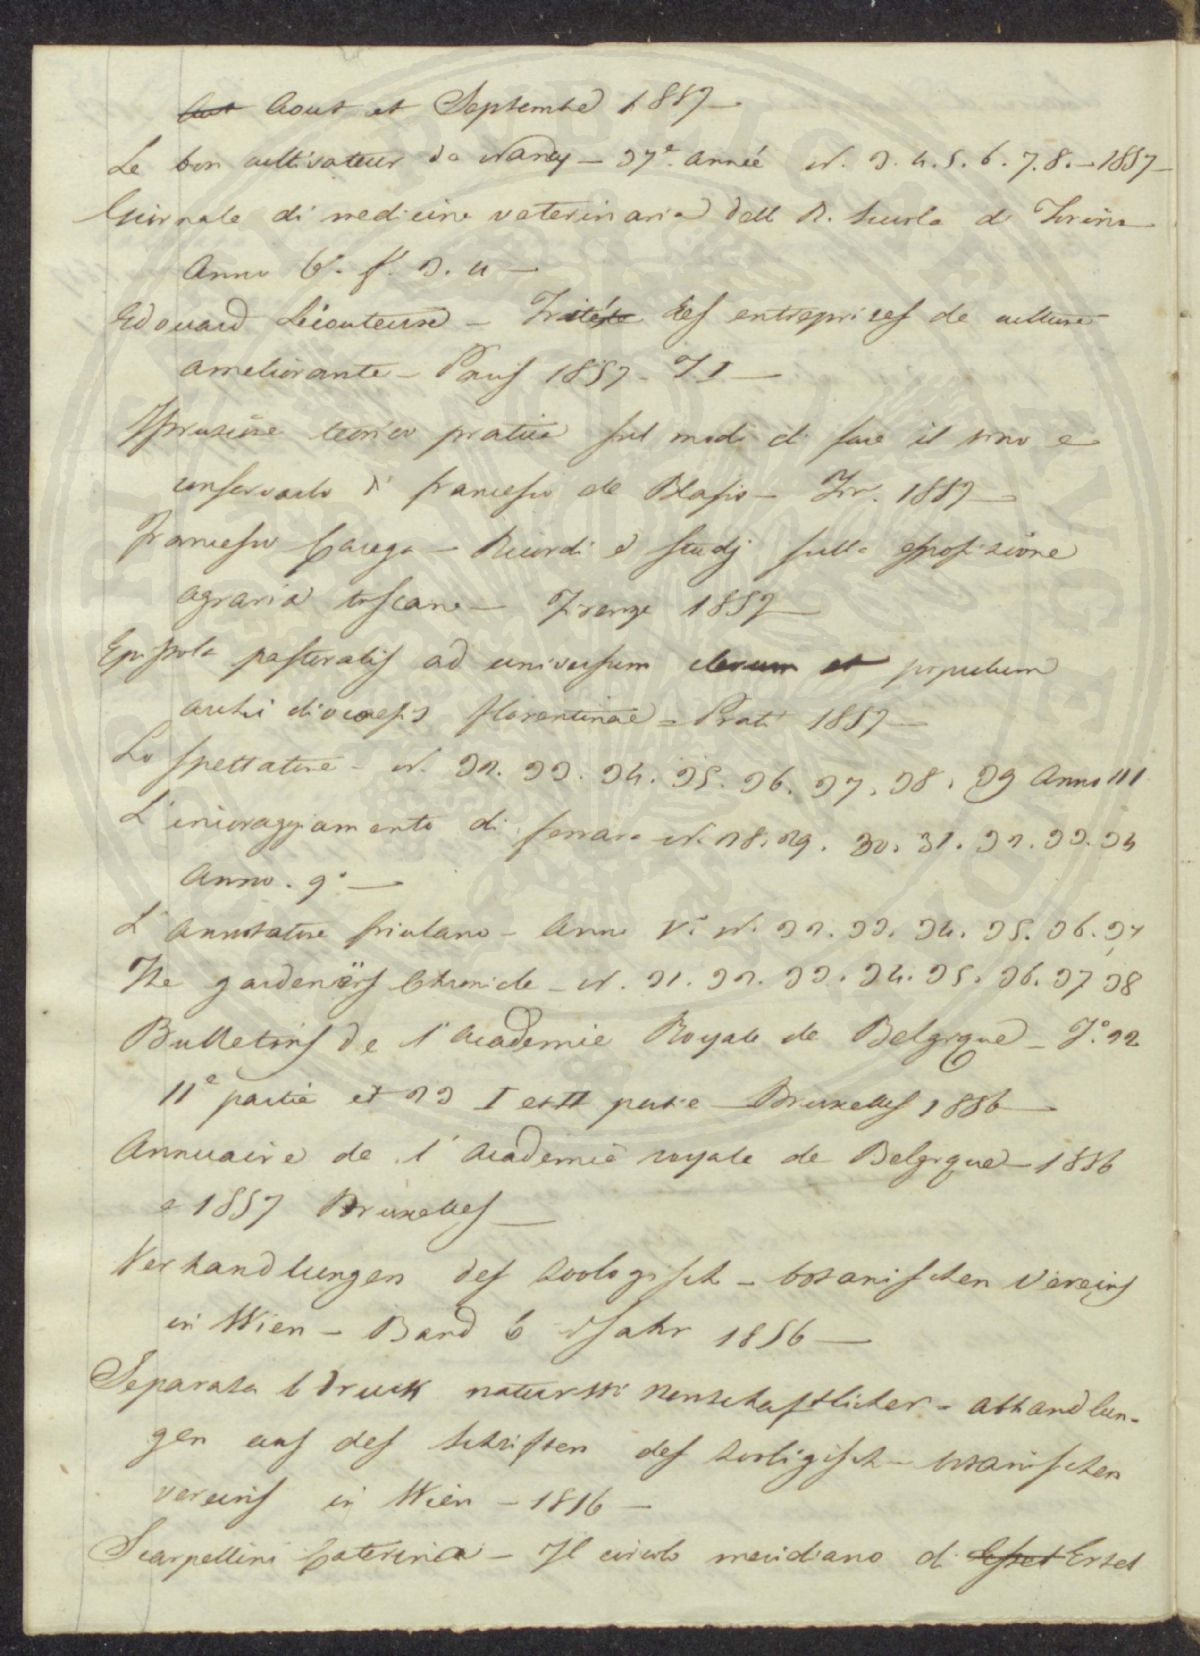 Aout et Septembre 1857 —
Le bon cultivateur de Nancy — 37e année N. 3. 4. 5. 6. 7. 8. — 1857 —
Giornale di medicina veterinaria dell R. Scuola di Torino
Anno 6°. f. 3. 4 —
Edouard Lecouteux — Traité des entreprises de culture
ameliorante — Paris 1857 — T I —
Istruzione teorico pratica sul modo di fare il vino e
conservarlo di Francesco de Blasis — Fir. 1857 —
Francesco Carega — Ricordi e studj sulla esposizione
agraria toscana — Firenze 1857 —
Epistola pastoralis ad universum clerum et populum
archi dioceseos florentinae — Prati 1857 —
Lo Spettatore — N. 32. 33. 34. 35. 36. 37. 38. 39 Anno III
L'incoraggiamento di ferrara N. 28. 29. 30. 31. 32. 33. 34
Anno. 9° —
L'annotatore friulano — Anno V° N. 32. 33. 34. 35. 36. 37
The gardeners Chronicle — N. 31. 32. 33. 34. 35. 36. 37 38
Bulletins de l'Academie Royale de Belgique — T. 22
II e partie et 23 I et II partie — Bruxelles 1856 —
Annuaire de l'Academie royale de Belgique — 1856
e 1857 Bruxelles —
Verhandlungen des zoologisch — botanischen Vereins
in Wien — Band 6 Jahr 1856 —
Separata bdruck naturwissenschaftlicher — abhandlun-
gen aus des schriften des zooligisch — botanischen
vereins in Wien — 1856 —
Scarpellini Caterina — Il circolo meridiano di Ertel